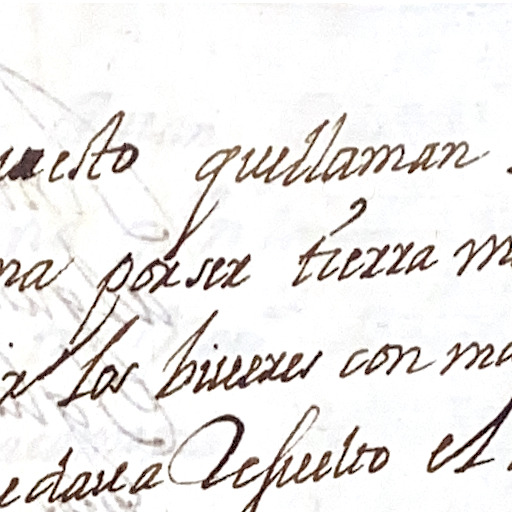 uesto quellaman
na por ser tierra m
ir los biueres con ma
edaua Resuelto el